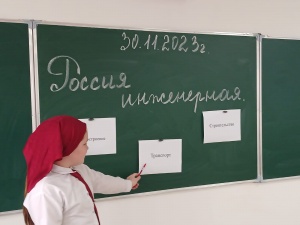 30.11.2023г.
Россия
инженерная.
Строительство
Транспорт